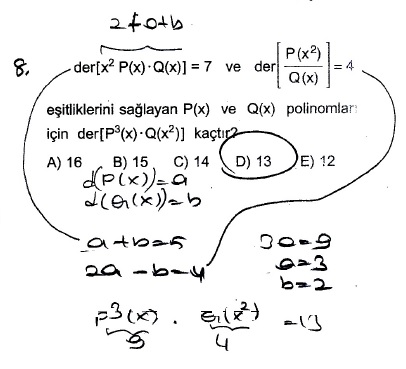 2+a+b
8. der[x² P(x)·Q(x)] = 7 ve der[P(x²)/Q(x)] = 4
eşitliklerini sağlayan P(x) ve Q(x) polinomları
için der[P³(x)·Q(x²)] kaçtır?
A) 16 B) 15 C) 14 D) 13 E) 12
d(P(x))=a
d(Q(x))=b
a+b=5 3a=9
2a-b=4 a=3
b=2
P³(x) · Q(x²) =13
9 4